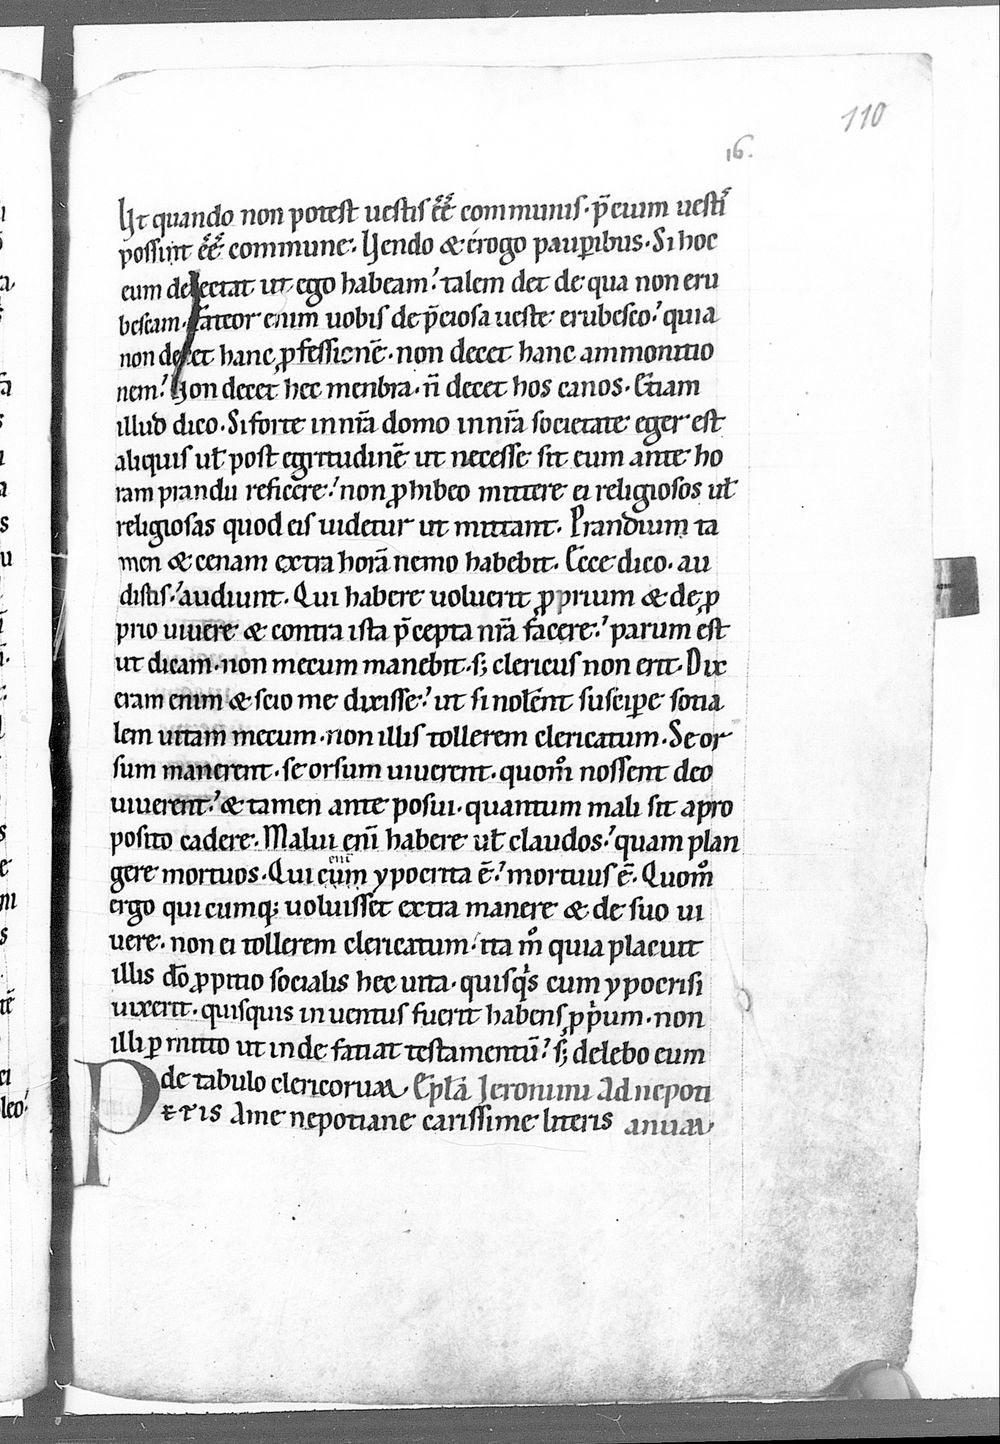 110
16.
Ut quando non potest uestis ēē communis. p̄cium uestiꝰ
possint ēē commune. Uendo & erogo paup̱ibus. Si hoc
eum delectat ut ego habeam? talem det de qua non eru
bescam. Fateor enim uobis de p̄ciosa ueste erubesco? quia
non decet hanc ꝓfessionē. non decet hanc ammonitio
nem? Non decet hec menbra. n̄ decet hos canos. Etiam
illud dico. Si forte in nr̄a domo in nr̄a societate eger est
aliquis uł post egritudinē ut necesse sit eum ante ho
ram prandii reficere? non ꝓhibeo mittere ei religiosos uł
religiosas quod eis uidetur ut mittant. Prandium ta
men & cenam extra horā nemo habebit. Ecce dico. au
distis? audiunt. Qui habere uoluerit ꝓprium & de ꝓ
prio uiuere & contra ista p̄cepta nr̄a facere? parum est
ut dicam. non mecum manebit. s; clericus non erit. Dix
eram enim & scio me dixisse? ut si nollent suscip̱e sotia
lem uitam mecum. non illis tollerem clericatum. Seor
sum manerent. seorsum uiuerent. quom̊ nossent deo
uiuerent? & tamen ante posui. quantum mali sit a pro
posito cadere. Malui enī habere uł claudos? quam plan
gere mortuos. Qui enim ypocrita ē? mortuus ē. Quom̊
ergo quicumq; uoluisset extra manere & de suo ui
uere. non ei tollerem clericatum. ita m̊ quia placuit
illis dō ꝓpitio socialis hec uita. quisq̇s cum ypocrisi
uixerit. quisquis inuentus fuerit habens ꝓpͥum. non
illi ꝑmitto ut inde fatiat testamentū? s; delebo eum
de tabulo clericorum. Ep̄la Ieronimi ad nepoti
PETIS A me nepotiane carissime literis anum.